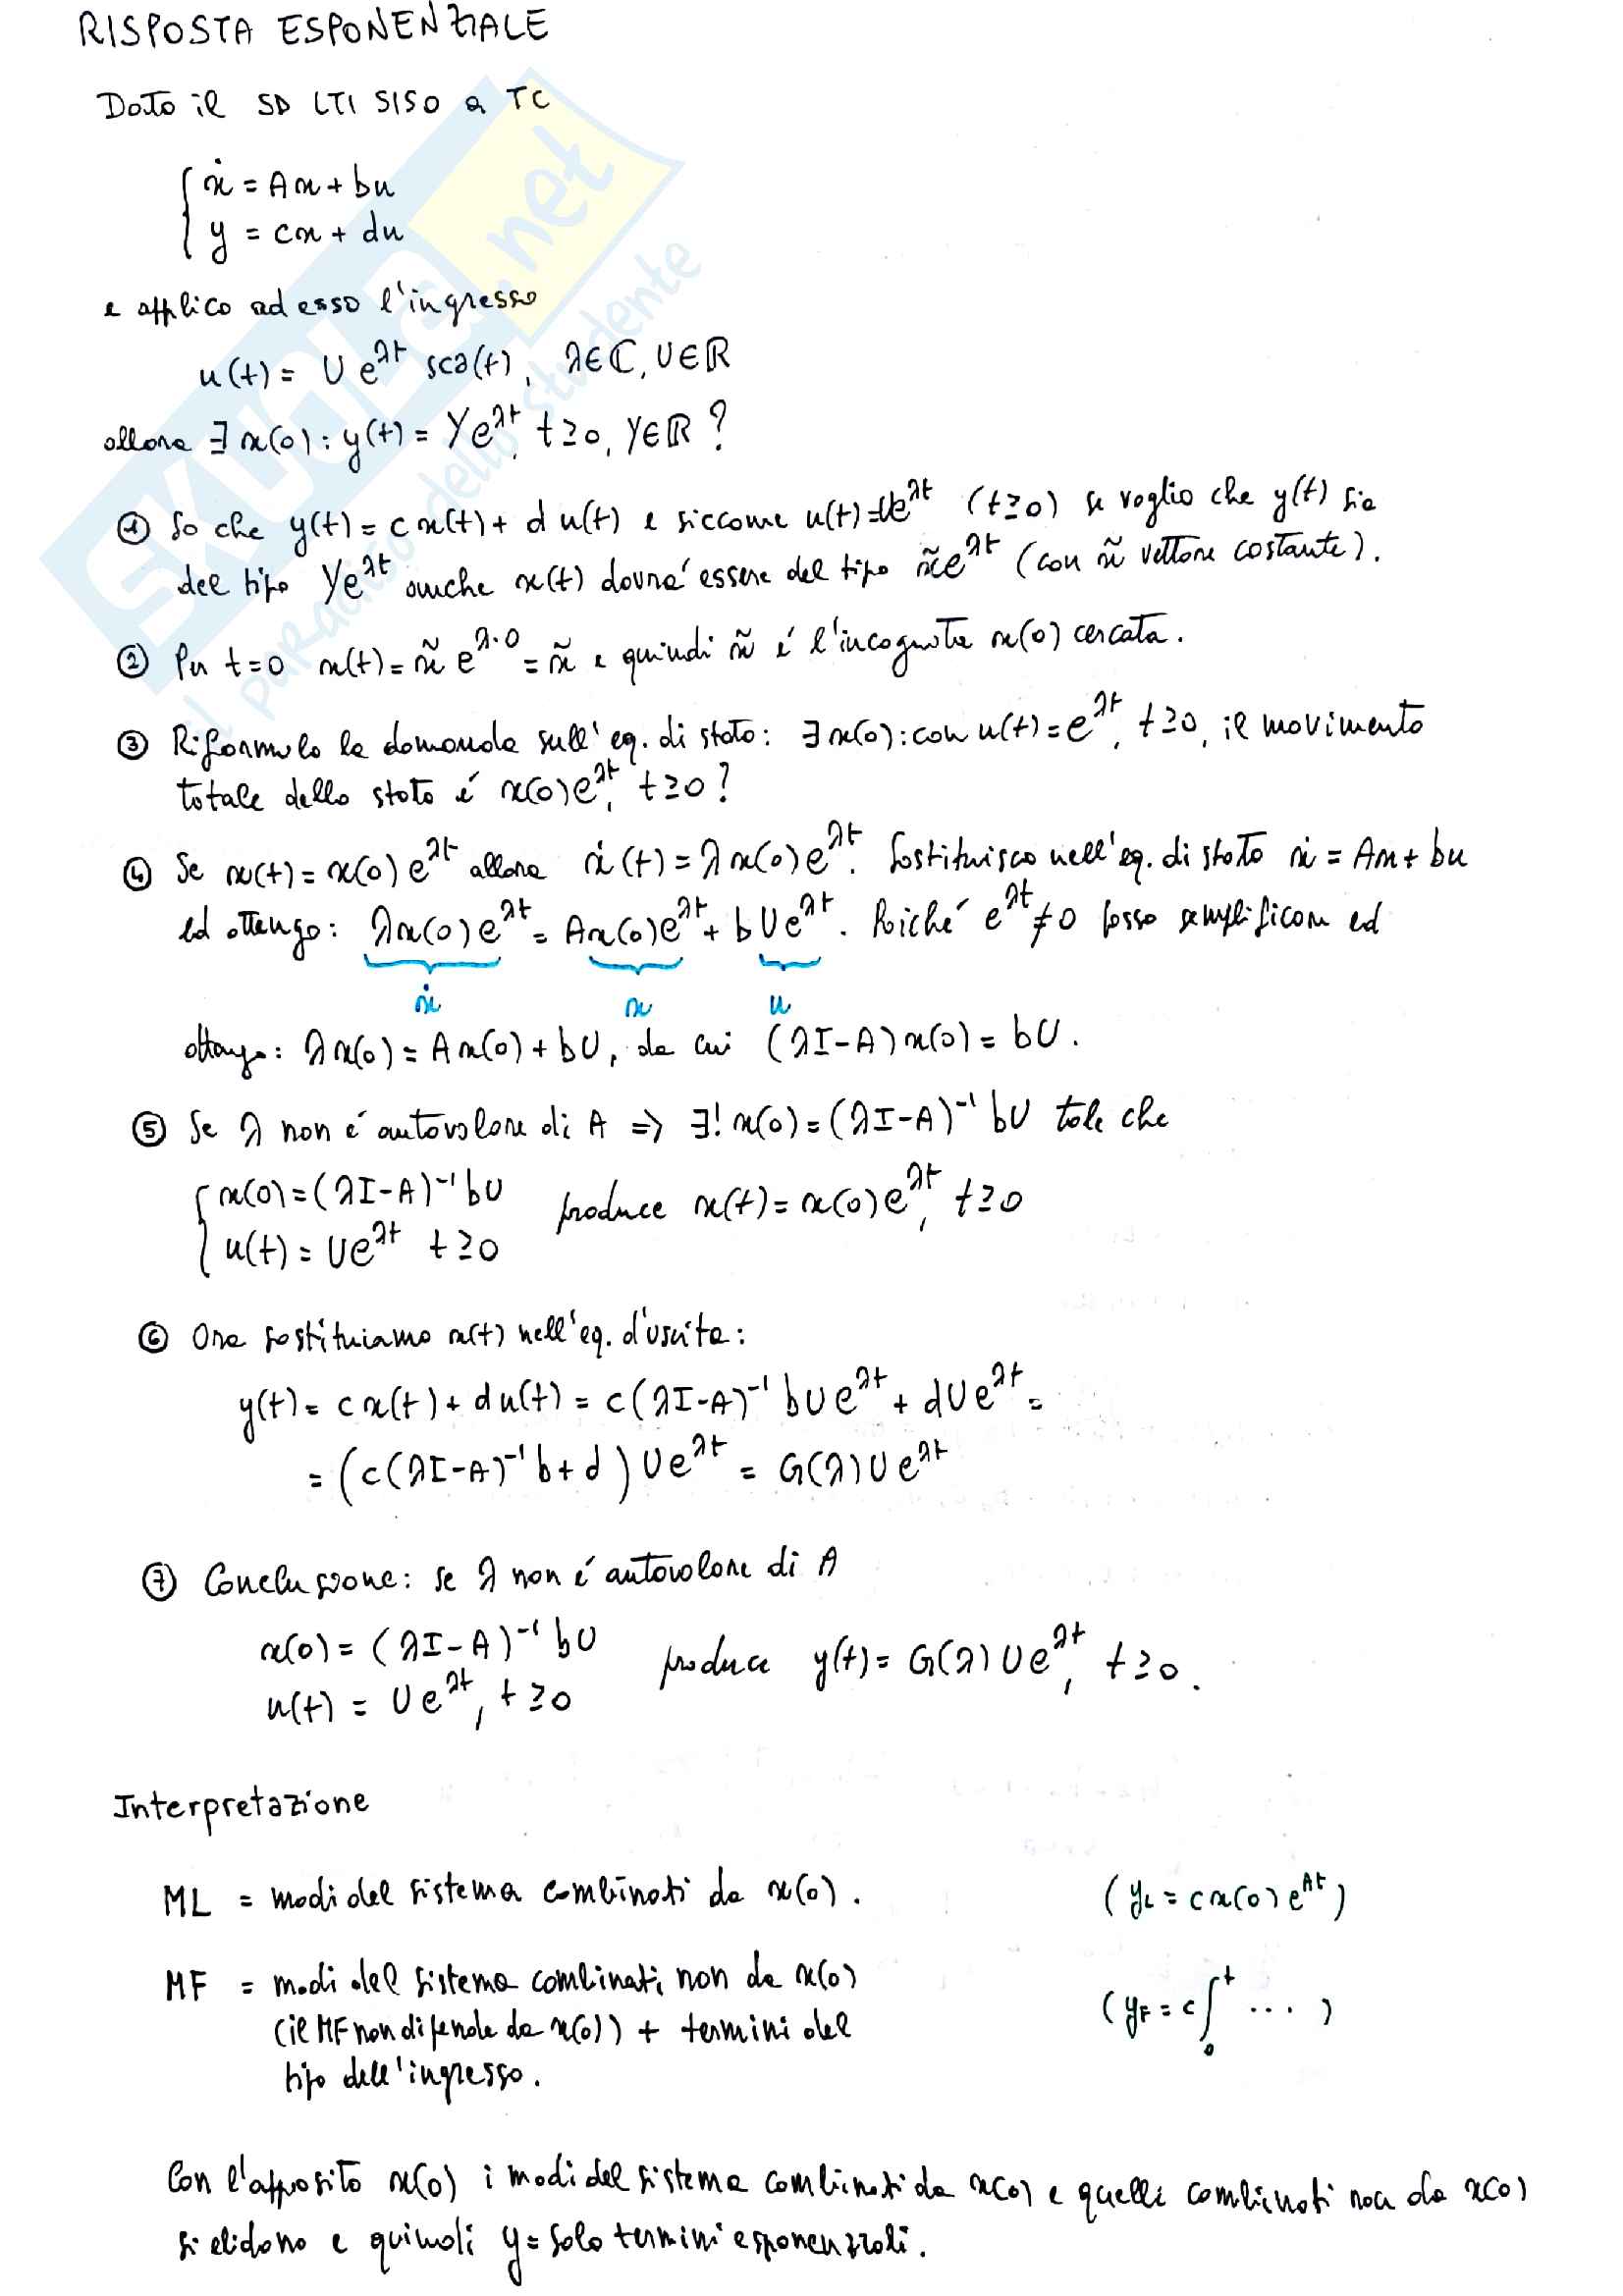 RISPOSTA ESPONENZIALE
Dato il SD LTI SISO a TC
{ ẋ = Ax + bu
y = cx + du
e applico adesso l'ingresso
u(t) = U e^λt sca(t), λ∈ℂ, U∈ℝ
allora ∃ x(0) : y(t) = Y e^λt, t≥0, Y∈ℝ ?
① So che y(t) = c x(t) + d u(t) e siccome u(t) = Ue^λt (t≥0) se voglio che y(t) sia
del tipo Ye^λt anche x(t) dovrá essere del tipo x̃e^λt (con x̃ vettore costante).
② Per t=0 x(t) = x̃ e^λ·0 = x̃ e quindi x̃ é l'incognita x(0) cercata.
③ Riformulo la domanda sull'eq. di stato: ∃ x(0) : con u(t) = e^λt, t≥0, il movimento
totale dello stato é x(0)e^λt, t≥0?
④ Se x(t) = x(0) e^λt allora ẋ(t) = λ x(0) e^λt. Sostituisco nell'eq. di stato ẋ = Ax + bu
ed ottengo: λx(0)e^λt = Ax(0)e^λt + bUe^λt. Poiché e^λt ≠ 0 posso semplificare ed
ẋ x u
ottengo: λx(0) = Ax(0) + bU, da cui (λI-A)x(0) = bU.
⑤ Se λ non é autovalore di A => ∃! x(0) = (λI-A)⁻¹ bU tale che
{ x(0) = (λI-A)⁻¹ bU
produce x(t) = x(0)e^λt, t≥0
u(t) = Ue^λt t≥0
⑥ Ora sostituiamo x(t) nell'eq. d'uscita:
y(t) = c x(t) + d u(t) = c(λI-A)⁻¹ bUe^λt + dUe^λt =
= (c(λI-A)⁻¹ b + d) Ue^λt = G(λ)Ue^λt
⑦ Conclusione: se λ non é autovalore di A
x(0) = (λI-A)⁻¹ bU
produce y(t) = G(λ)Ue^λt, t≥0.
u(t) = Ue^λt, t≥0
Interpretazione
ML = modi del sistema combinati da x(0). (y_L = c x(0) e^At)
MF = modi del sistema combinati non da x(0)
(il MF non dipende da x(0)) + termini del (y_F = c ∫₀^t ... )
tipo dell'ingresso.
Con l'apposito x(0) i modi del sistema combinati da x(0) e quelli combinati non da x(0)
si elidono e quindi y = solo termini esponenziali.
SKUOLA.net
il paradiso dello studente